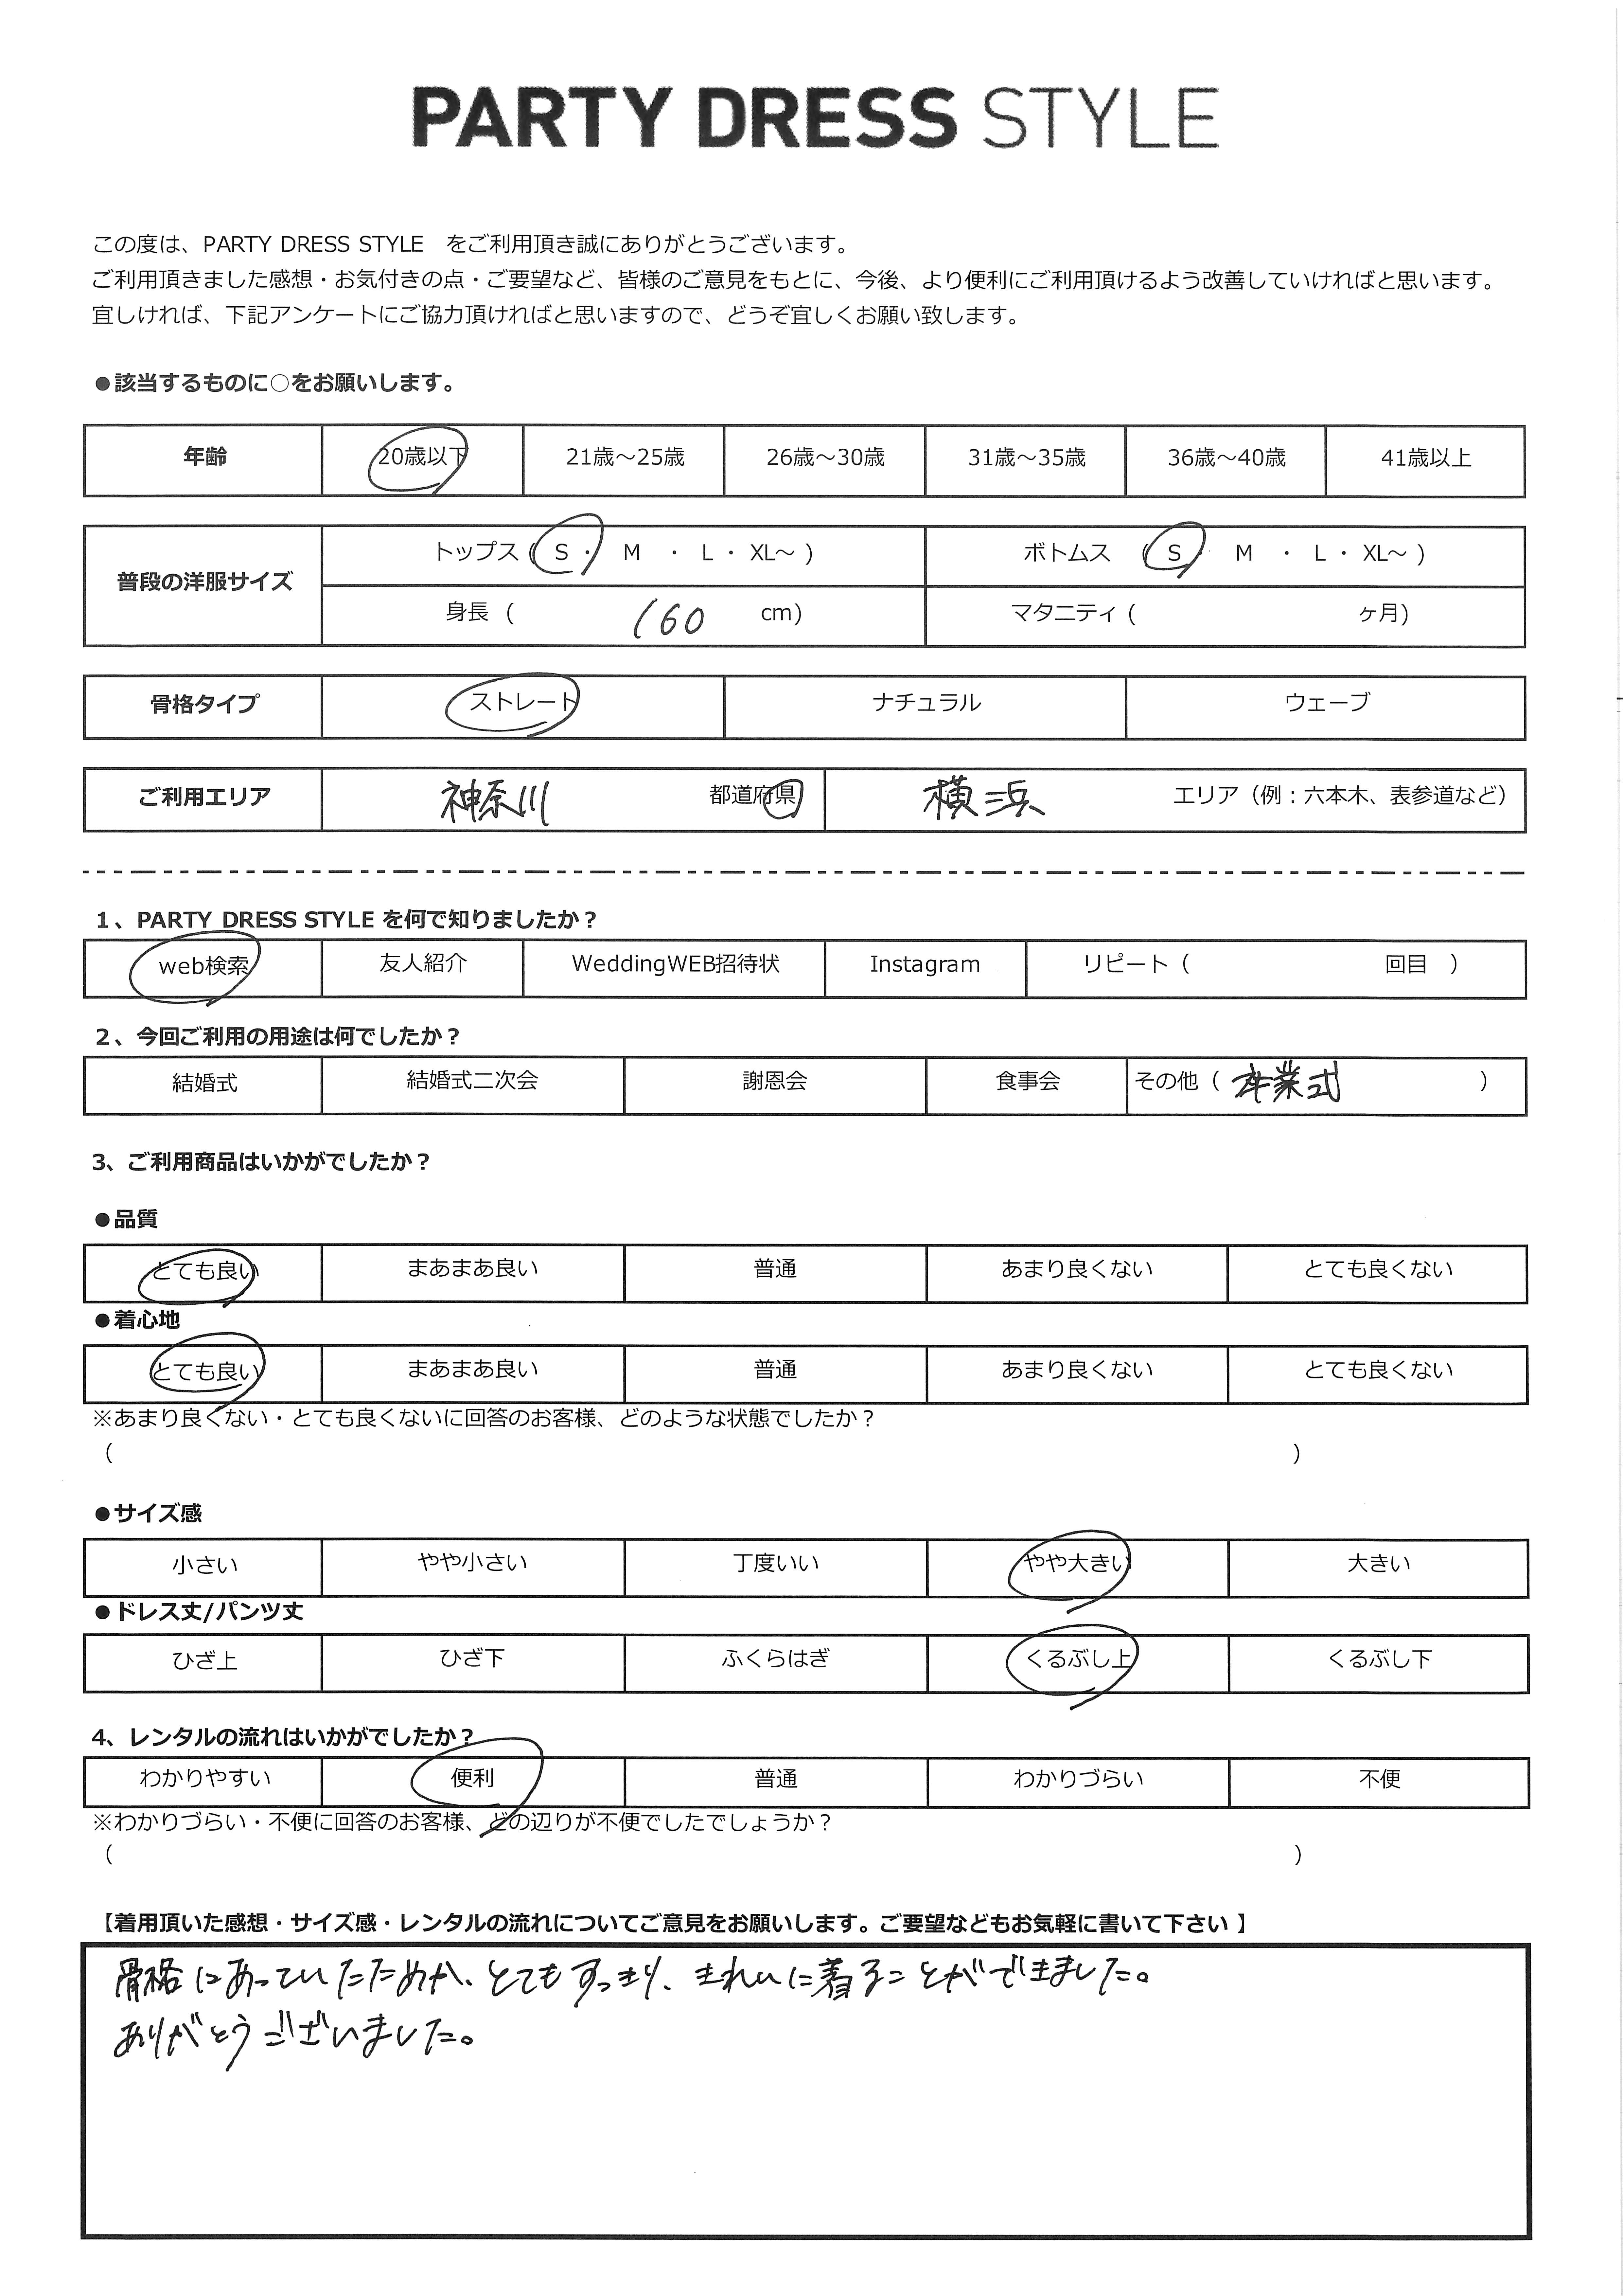 PARTY DRESS STYLE
この度は、PARTY DRESS STYLE をご利用頂き誠にありがとうございます。
ご利用頂きました感想・お気付きの点・ご要望など、皆様のご意見をもとに、今後、より便利にご利用頂けるよう改善していければと思います。
宜しければ、下記アンケートにご協力頂ければと思いますので、どうぞ宜しくお願い致します。
●該当するものに○をお願いします。
年齢 20歳以下 21歳～25歳 26歳～30歳 31歳～35歳 36歳～40歳 41歳以上
普段の洋服サイズ トップス ( S ・ M ・ L ・ XL～ ) ボトムス ( S ・ M ・ L ・ XL～ )
身長 ( 160 cm) マタニティ ( ヶ月)
骨格タイプ ストレート ナチュラル ウェーブ
ご利用エリア 神奈川 都道府県 横浜 エリア（例：六本木、表参道など）
1、PARTY DRESS STYLE を何で知りましたか？
web検索 友人紹介 WeddingWEB招待状 Instagram リピート（ 回目 ）
2、今回ご利用の用途は何でしたか？
結婚式 結婚式二次会 謝恩会 食事会 その他（ 卒業式 ）
3、ご利用商品はいかがでしたか？
●品質
とても良い まあまあ良い 普通 あまり良くない とても良くない
●着心地
とても良い まあまあ良い 普通 あまり良くない とても良くない
※あまり良くない・とても良くないに回答のお客様、どのような状態でしたか？
（ ）
●サイズ感
小さい やや小さい 丁度いい やや大きい 大きい
●ドレス丈/パンツ丈
ひざ上 ひざ下 ふくらはぎ くるぶし上 くるぶし下
4、レンタルの流れはいかがでしたか？
わかりやすい 便利 普通 わかりづらい 不便
※わかりづらい・不便に回答のお客様、どの辺りが不便でしたでしょうか？
（ ）
【着用頂いた感想・サイズ感・レンタルの流れについてご意見をお願いします。ご要望などもお気軽に書いて下さい 】
骨格にあっていたためか、とてもすっきり、きれいに着ることができました。
ありがとうございました。